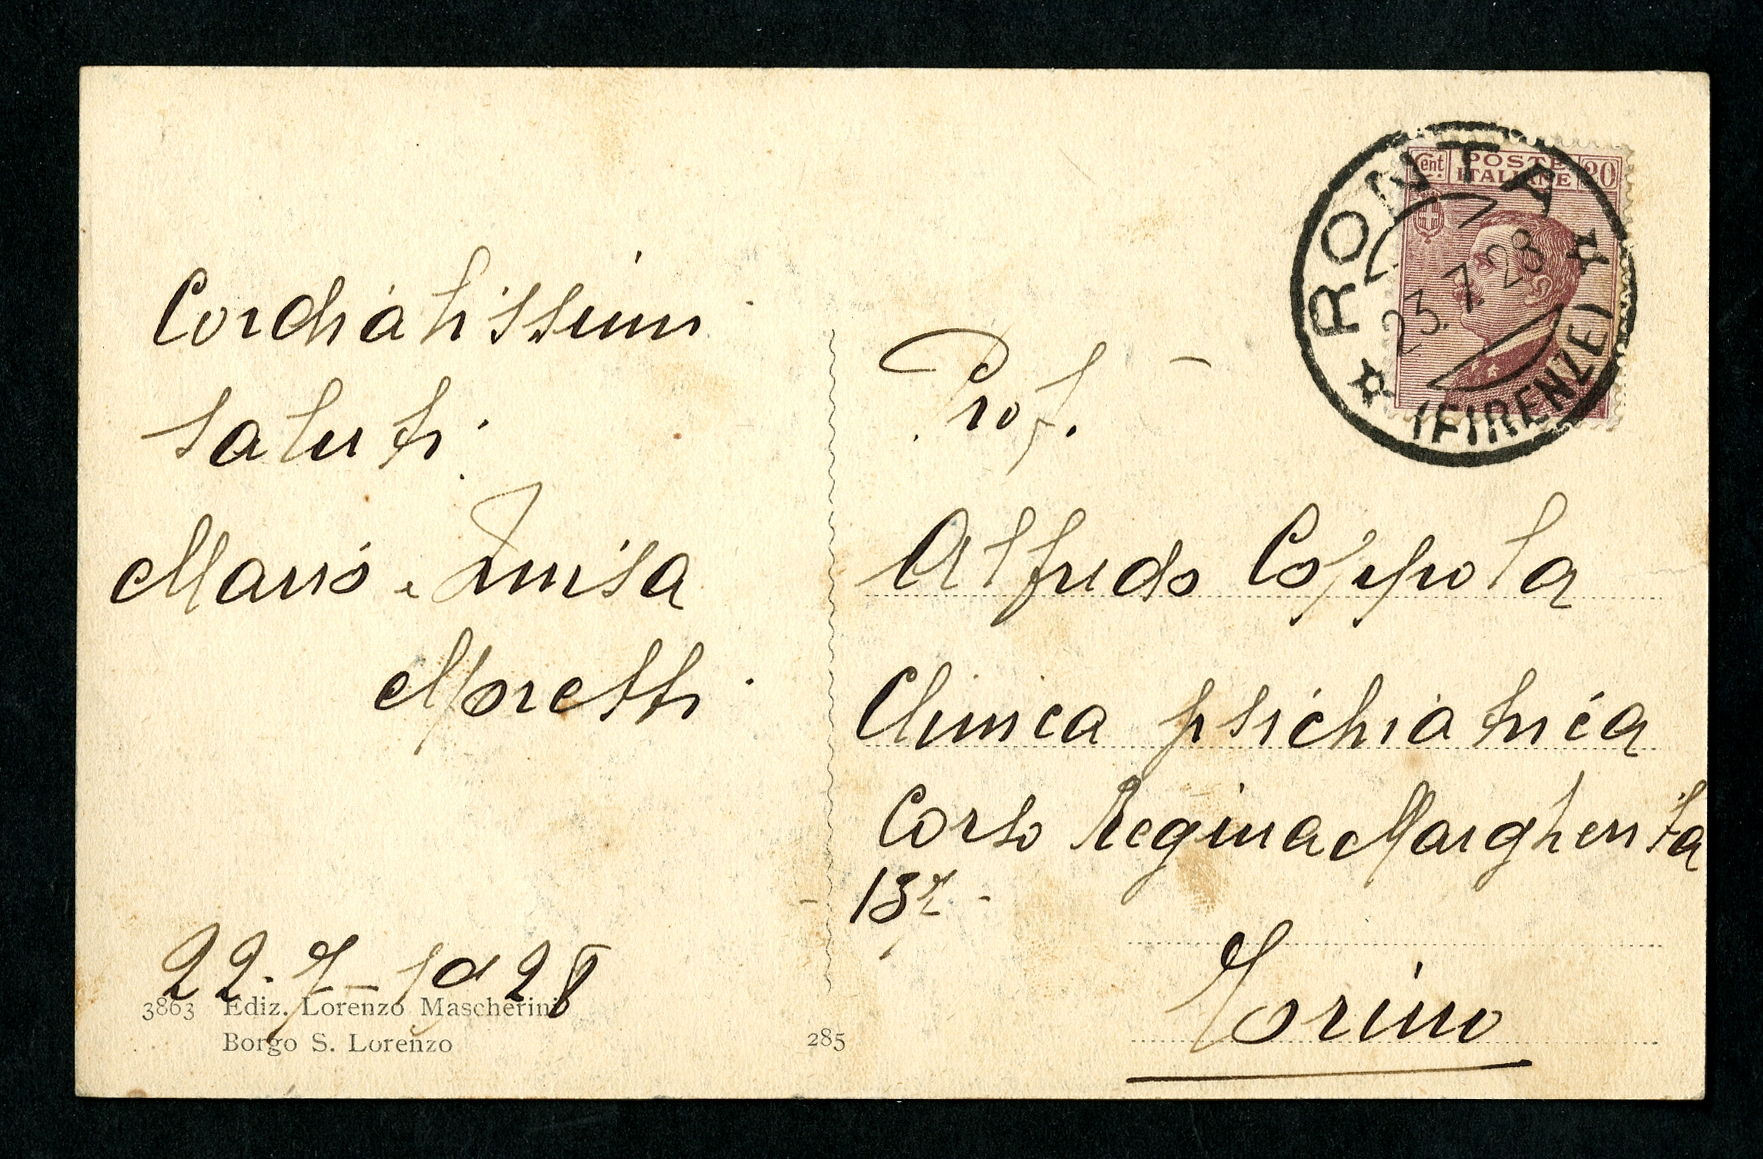 Cordialissimi
saluti.
Mario e Luisa
Moretti.
22-7-1928
3863 Ediz. Lorenzo Mascherini
Borgo S. Lorenzo
285
Cent. POSTE ITALIANE 20
RONTA
23.7.28
(FIRENZE)
Prof.
Alfredo Coppola
Clinica psichiatrica
Corso Regina Margherita
137 -
Torino